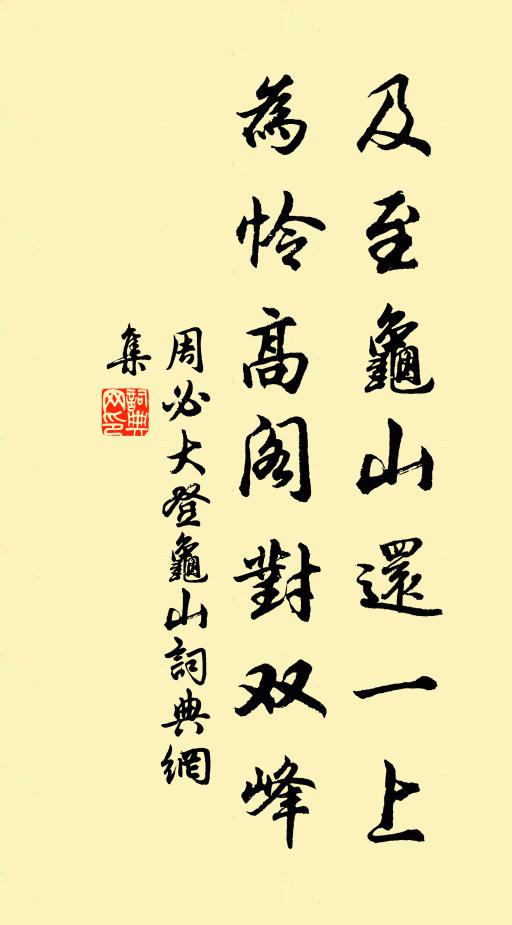 及至龜山還一上
為怜高阁對双峰
周必大登龜山詞典網
集
詞典
网印